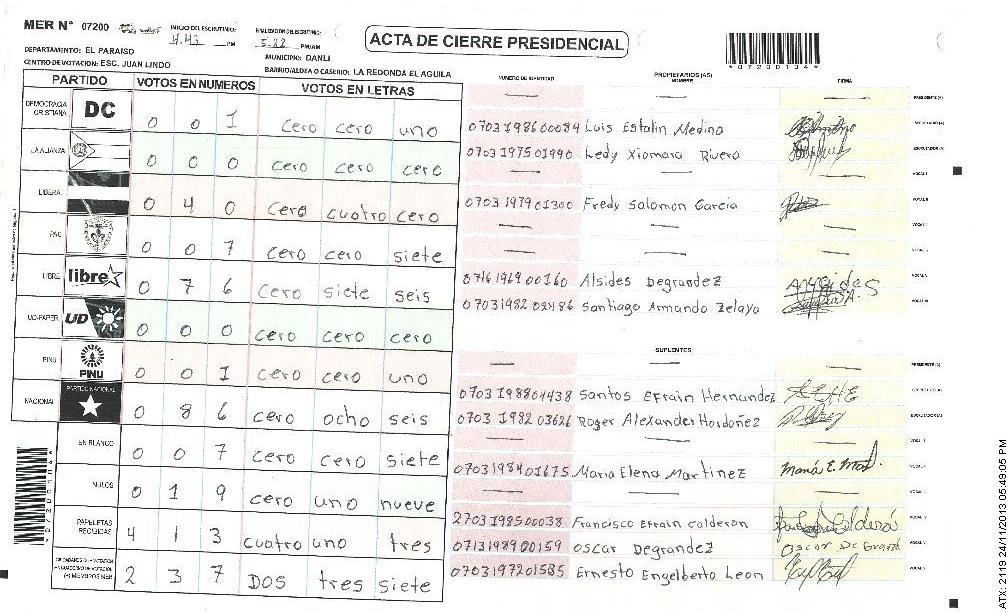 MER N° 07200 INICIO DEL ESCRUTINIO: 4.43 PM FINALIZACION DEL ESCRUTINIO: 5:22 PM/AM
ACTA DE CIERRE PRESIDENCIAL
*07200104*
DEPARTAMENTO: EL PARAISO MUNICIPIO: DANLI
CENTRO DE VOTACION: ESC. JUAN LINDO BARRIO/ALDEA O CASERIO: LA REDONDA EL AGUILA
PARTIDO VOTOS EN NUMEROS VOTOS EN LETRAS NUMERO DE IDENTIDAD PROPIETARIOS (AS) NOMBRE FIRMA
DEMOCRACIA CRISTIANA DC 0 0 1 cero cero uno
LA ALIANZA 0 0 0 cero cero cero
LIBERAL 0 4 0 cero cuatro cero
PAC 0 0 7 cero cero siete
LIBRE libre 0 7 6 cero siete seis
UD-FAPER UD 0 0 0 cero cero cero
PINU PINU 0 0 1 cero cero uno
NACIONAL PARTIDO NACIONAL 0 8 6 cero ocho seis
EN BLANCO 0 0 7 cero cero siete
NULOS 0 1 9 cero uno nueve
PAPELETAS RECIBIDAS 4 1 3 cuatro uno tres
2 3 7 DOS tres siete
PRESIDENTE (A)
0703198600084 Luis Estalin Medino SECRETARIO (A)
0703197501990 Ledy Xiomara Rivera ESCRUTADOR (A)
VOCAL I
0703197901300 Fredy Salomon Garcia VOCAL II
0716196900160 Alsides Degrandez
0703198202486 Santiago Armando Zelaya
SUPLENTES
PRESIDENTE (A)
0703198804438 Santos Efrain Hernandez SECRETARIO (A)
0703198203626 Roger Alexander Hordoñez ESCRUTADOR (A)
0703198401675 Maria Elena Martinez
2703198500038 Francisco Efrain Calderon
0713198900159 oscar Degrandez
0703197201585 Ernesto Engelberto Leon
ATX: 2119 24/11/2013 05:49:05 PM